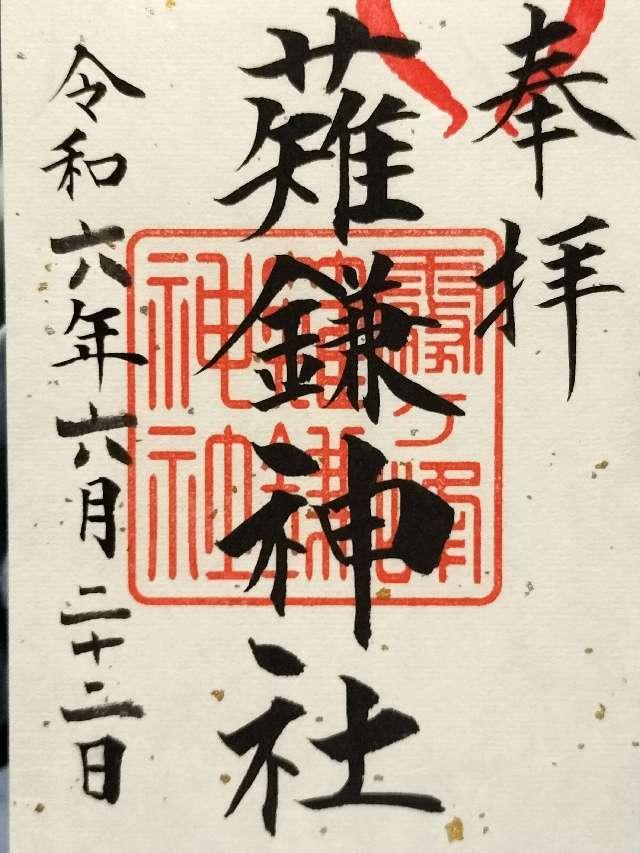 奉拝
薙鎌神社
令和六年六月二十二日
霧ヶ峰
薙鎌
神社